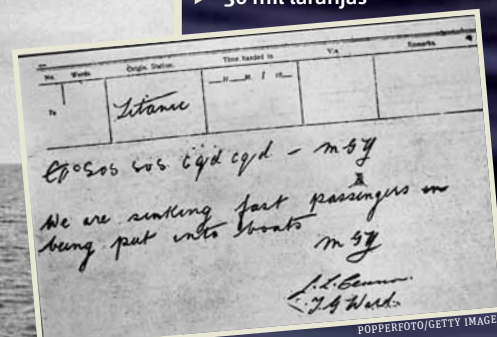 30 mil laranjas
No. Words Origin. Station. Time handed in Via Remarks.
To Titanic H. M.
SOS SOS cqd cqd - MGY
We are sinking fast passengers
being put into boats
MGY
POPPERFOTO/GETTY IMAGE